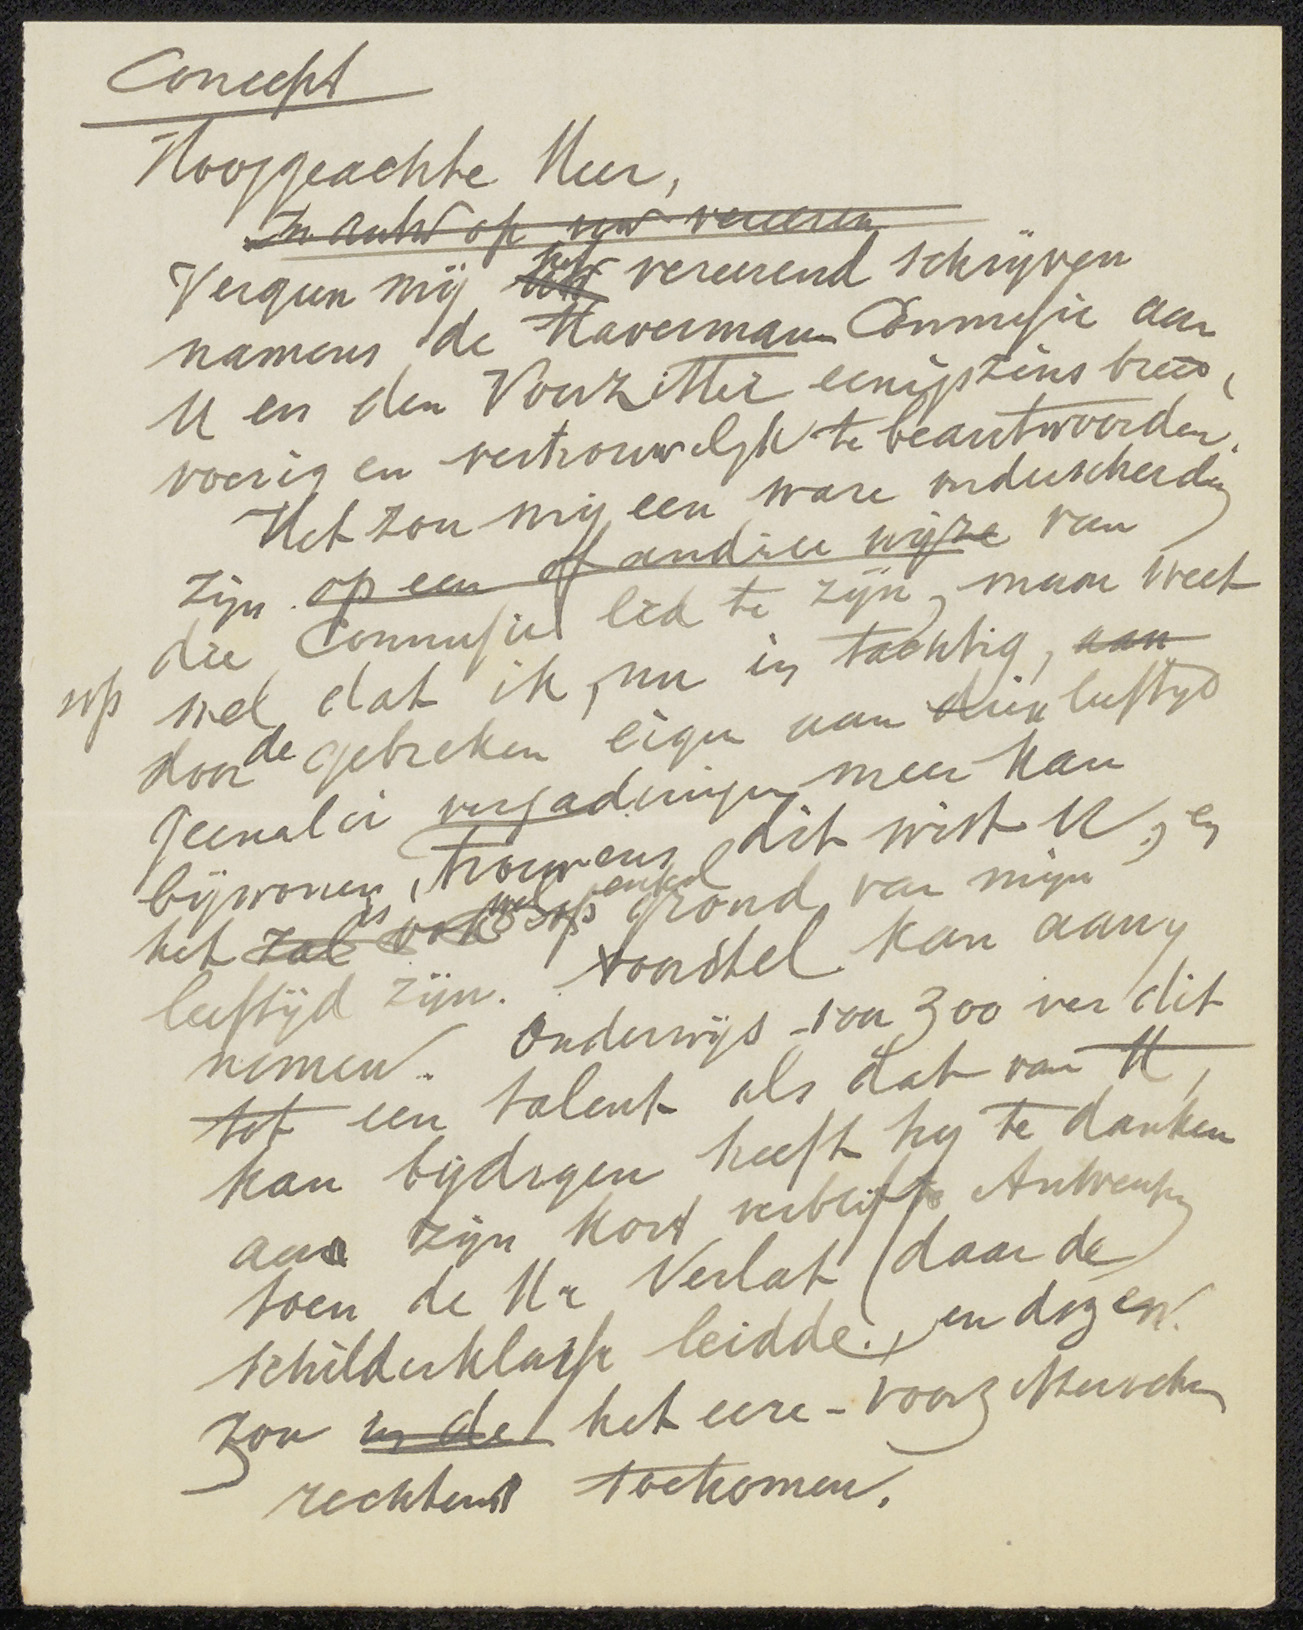 Concept
Hooggeachte Heer,
In antw op uw vereeren
Vergun mij het vereerend schrijven
namens de Haverman Commissie aan
U en den Voorzitter eenigszins breed,
voerig en vertrouwelijk te beantwoorden.
Het zou mij een ware onderscheiding
zijn op een of andere wijze van
die Commissie lid te zijn, maar weet
wel dat ik, nu in tachtig, aan
door de gebreken eigen aan dien leeftijd
geenerlei vergaderingen meer kan
bijwonen, trouwens dit wist U, en
het zal is ook wel op enkel grond van mijn
leeftijd zijn. voorstel kan aan
nemen. Onderwijs van zoo ver dit
tot een talent als dat van H,
kan bijdragen heeft hij te danken
aan zijn kort verblijf te Antwerpen
toen de Hr Verlat (daar de
schilderklasse leidde., en dezen.
zou in de het eere-voorzitterschap
rechtens toekomen.